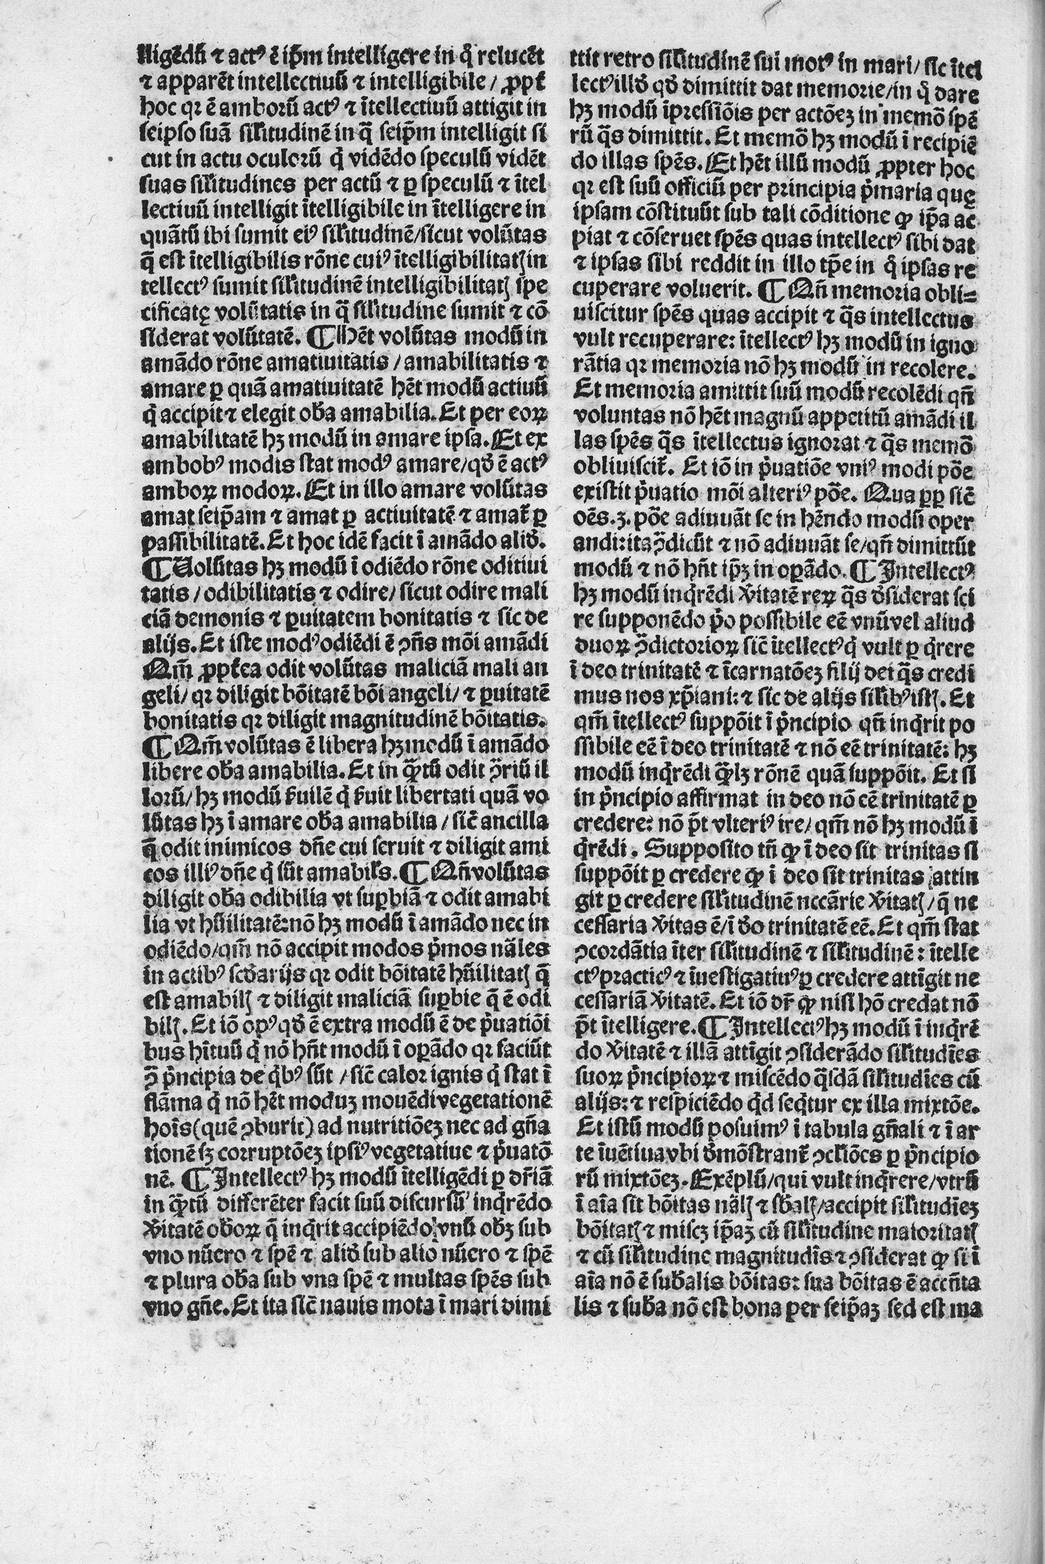 lligēdū ⁊ actꝰ ē ip̄m intelligere in q̄ relucēt
⁊ apparēt intellectiuū ⁊ intelligibile / ꝓpt̄
hoc qꝛ ē amborū actꝰ ⁊ ītellectiuū attigit in
seipso suā sił̄itudinē in q̄ seip̄m intelligit si
cut in actu oculorū q̄ vidēdo speculū vidēt
suas sił̄itudines per actū ⁊ ꝑ speculū ⁊ ītel
lectiuū intelligit ītelligibile in ītelligere in
quātū ibi sumit eiꝰ sił̄itudinē/sicut volūtas
q̄ est ītelligibilis rōne cuiꝰ ītelligibilitatꝭ in
tellectꝰ sumit sił̄itudinē intelligibilitatꝭ spe
cificatę volūtatis in q̄ sił̄itudine sumit ⁊ cō
siderat volūtatē. ¶ Hēt volūtas modū in
amādo rōne amatiuitatis / amabilitatis ⁊
amare ꝑ quā amatiuitatē hēt modū actiuū
q̄ accipit ⁊ elegit ob̄a amabilia. Et per eoꝝ
amabilitatē hꝫ modū in amare ipsa. Et ex
ambobꝰ modis stat modꝰ amare/qd̄ ē actꝰ
amboꝝ modoꝝ. Et in illo amare volūtas
amat seip̄am ⁊ amat ꝑ actiuitatē ⁊ amat̄ ꝑ
passibilitatē. Et hoc idē facit ī amādo alid̄.
¶ Volūtas hꝫ modū ī odiēdo rōne oditiui
tatis / odibilitatis ⁊ odire / sicut odire mali
ciā demonis ⁊ ꝑuitatem bonitatis ⁊ sic de
alijs. Et iste modꝰ odiēdi ē ꝯn̄s mōi amādi
Qm̄ ꝓpt̄ea odit volūtas maliciā mali an
geli / qꝛ diligit bōitatē bōi angeli / ⁊ ꝑuitatē
bonitatis qꝛ diligit magnitudinē bōitatis.
¶ Qm̄ volūtas ē libera hꝫ modū ī amādo
libere ob̄a amabilia. Et in q̄tū odit ꝯ̄riū il
lorū / hꝫ modū k̄uilē q̄ k̄uit libertati quā vo
lūtas hꝫ ī amare ob̄a amabilia / sić ancilla
q̄ odit inimicos dn̄e cui seruit ⁊ diligit ami
cos illiꝰ dn̄e q̄ sūt amabił̄s. ¶ Qn̄ volūtas
diligit ob̄a odibilia vt suꝑbiā ⁊ odit amabi
lia vt hūilitatē: nō hꝫ modū ī amādo nec in
odiēdo/qm̄ nō accipit modos p̄mos nāles
in actibꝰ scd̄arijs qꝛ odit bōitatē hūilitatꝭ q̄
est amabilꝭ ⁊ diligit maliciā suꝑbie q̄ ē odi
bilꝭ. Et iō opꝰ qd̄ ē extra modū ē de p̄uatiōi
bus hītuū q̄ nō hn̄t modū ī oꝑādo qꝛ faciūt
ꝯ̄ p̄ncipia de q̄bꝰ sūt / sić calor ignis q̄ stat ī
flāma q̄ nō hēt moduꝫ mouēdi vegetationē
hoīs (quē ꝯburit) ad nutritiōeꝫ nec ad gn̄a
tionē sꝫ corruptōeꝫ ipsiꝰ vegetatiue ⁊ p̄uatō
nē. ¶ Intellectꝰ hꝫ modū ītelligēdi ꝑ dr̄iā
in q̄tū differēter facit suū discursū inq̄rēdo
v̄itatē oboꝝ q̄ inq̄rit accipiēdo vnū obꝫ sub
vno nūero ⁊ spē ⁊ alid̄ sub alio nūero ⁊ spē
⁊ plura ob̄a sub vna spē ⁊ multas spēs sub
vno gn̄e. Et ita sić nauis mota ī mari dimi
ttit retro sił̄itudinē sui motꝰ in mari / sic ītel
lectꝰ illd̄ qd̄ dimittit dat memorie/in q̄ dare
hꝫ modū īpressiōis per actōeꝫ in memō spē
rū q̄s dimittit. Et memō hꝫ modū ī recipiē
do illas spēs. Et hēt illū modū ꝓpter hoc
qꝛ est suū officiū per principia p̄maria quę
ipsam cōstituūt sub tali cōditione ꝙ ip̄a ac
piat ⁊ cōseruet spēs quas intellectꝰ sibi dat
⁊ ipsas sibi reddit in illo tp̄e in q̄ ipsas re
cuperare voluerit. ¶ Qn̄ memoria obli⸗
uiscitur spēs quas accipit ⁊ q̄s intellectus
vult recuperare: ītellectꝰ hꝫ modū in igno
rātia qꝛ memoria nō hꝫ modū in recolere.
Et memoria amittit suū modū recolēdi qn̄
voluntas nō hēt magnū appetitū amādi il
las spēs q̄s ītellectus ignorat ⁊ q̄s memō
obliuiscit̄. Et iō in p̄uatiōe vniꝰ modi pōe
existit p̄uatio mōi alteriꝰ pōe. Qua ꝓꝑ sić
oēs.3. pōe adiuuāt se in hēndo modū oper
andi: ita ꝯ̄dicūt ⁊ nō adiuuāt se/qn̄ dimittūt
modū ⁊ nō hn̄t ip̄ꝫ in oꝑādo. ¶ Intellectꝰ
hꝫ modū inq̄rēdi v̄itatē reꝝ q̄s d̄siderat sci
re supponēdo p̄o possibile eē vnū vel aliud
duoꝝ ꝯ̄dictorioꝝ sić ītellectꝰ q̄ vult ꝑ q̄rere
ī deo trinitatē ⁊ īcarnatōeꝫ filij dei q̄s credi
mus nos xp̄iani: ⁊ sic de alijs sił̄ibꝰ istꝭ. Et
qm̄ ītellectꝰ suppōit ī p̄ncipio qn̄ inq̄rit po
ssibile eē ī deo trinitatē ⁊ nō eē trinitatē: hꝫ
modū inq̄rēdi q̄lꝫ rōnē quā suppōit. Et si
in p̄ncipio affirmat in deo nō eē trinitatē ꝑ
credere: nō p̄t vlteriꝰ ire / qm̄ nō hꝫ modū ī
q̄rēdi. Supposito tn̄ ꝙ ī deo sit trinitas si
suppōit ꝑ credere ꝙ ī deo sit trinitas attin
git ꝑ credere sił̄itudinē nccāríe v̄itatꝭ / q̄ ne
cessaria v̄itas ē/ī d̄o trinitatē eē. Et qm̄ stat
ꝯcordātia īter sił̄itudinē ⁊ sił̄itudinē: ītelle
ctꝰ practicꝰ ⁊ īuestigatiuꝰ ꝑ credere attigit ne
cessariā v̄itatē. Et iō dr̄ ꝙ nisi hō credat nō
p̄t ītelligere. ¶ Intellectꝰ hꝫ modū ī inq̄rē
do v̄itatē ⁊ illā attigit ꝯsiderādo sił̄itudīes
suoꝝ p̄ncipioꝝ ⁊ miscēdo q̄sdā sił̄itudīes cū
alijs: ⁊ respiciēdo qd̄ seq̄tur ex illa mixtōe.
Et istū modū posuimꝰ ī tabula gn̄ali ⁊ ī ar
te īuētiua vbi d̄mōstrant̄ ꝯcl̄iōes ꝑ p̄ncipio
rū mixtōeꝫ. Exēplū/qui vult inq̄rere/vtrū
ī aīa sit bōitas nālꝭ ⁊ sb̄alꝭ/accipit sił̄itudīeꝫ
bōitatꝭ ⁊ miscꝫ ip̄aꝫ cū sił̄itudine maioritatꝭ
⁊ cū sił̄itudine magnitudīs ⁊ ꝯsiderat ꝙ si ī
aīa nō ē sub̄alis bōitas: sua bōitas ē accn̄ta
lis ⁊ sub̄a nō est bona per seip̄aꝫ sed est ma